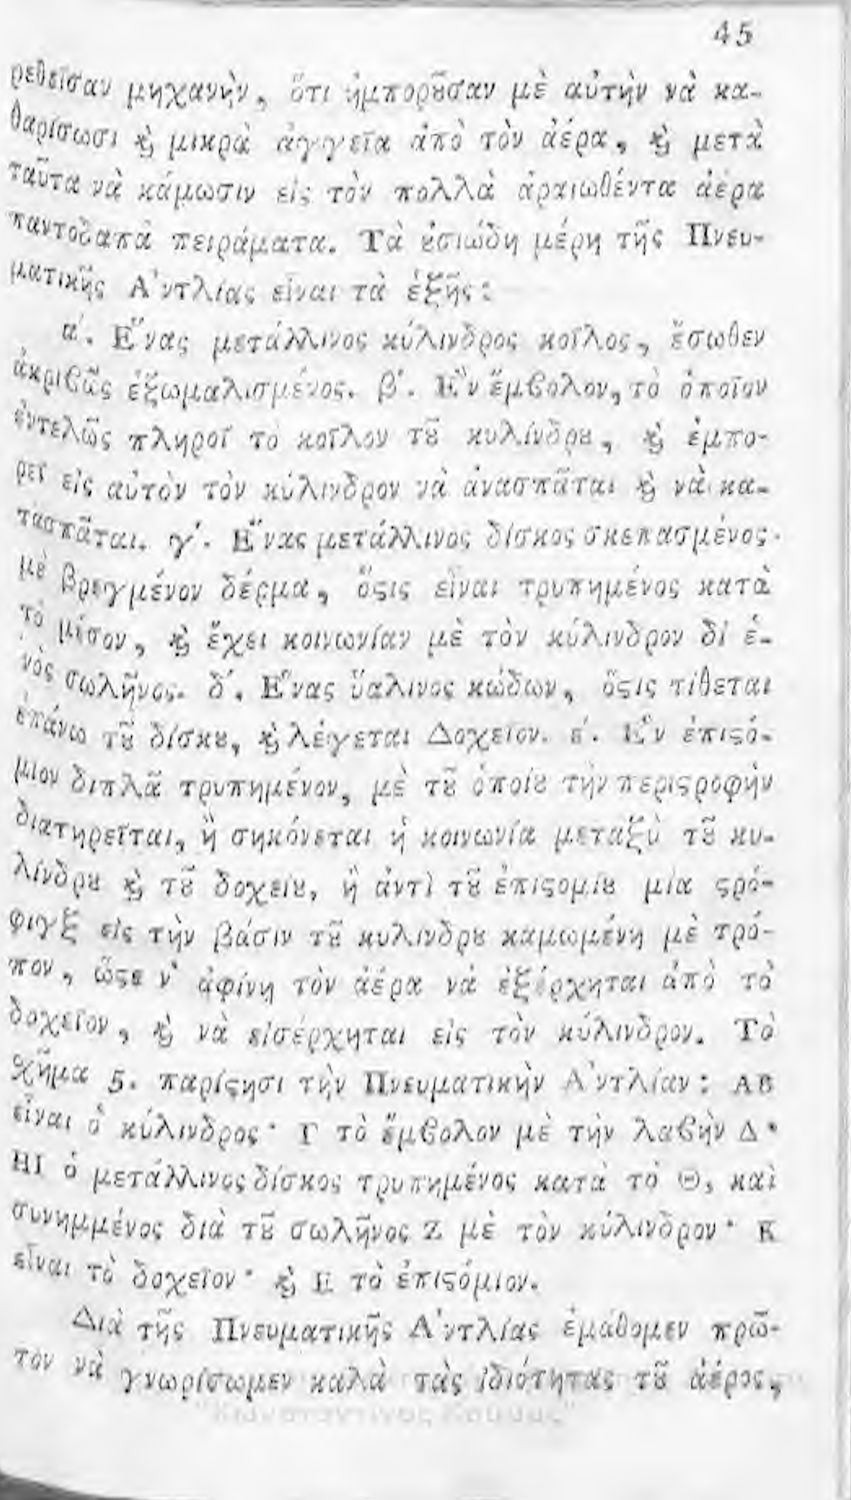 45
ρεθεῖσαν μηχανὴν, ὅτι ἠμποροῦσαν μὲ αὐτὴν νὰ κα-
θαρίσωσι ϗ μικρὰ ἀγγεῖα ἀπὸ τὸν ἀέρα, ϗ μετὰ
ταῦτα νὰ κάμωσιν εἰς τὸν πολλὰ ἀραιωθέντα ἀέρα
παντοδαπὰ πειράματα. Τὰ ȣσιώδη μέρη τῆς Πνευ-
ματικῆς Ἀντλίας εἶναι τὰ ἑξῆς:
α΄. Ἕνας μετάλλινος κύλινδρος κοῖλος, ἔσωθεν
ἀκριβῶς ἐξωμαλισμένος. β΄. Ἓν ἔμβολον, τὸ ὁποῖον
ἐντελῶς πληροῖ τὸ κοῖλον τȣ͂ κυλίνδρȣ, ϗ ἐμπο-
ρεῖ εἰς αὐτὸν τὸν κύλινδρον νὰ ἀνασπᾶται ϗ νὰ κα-
τασπᾶται. γ΄. Ἕνας μετάλλινος δίσκος σκεπασμένος
μὲ βρεγμένον δέρμα, ὅϛις εἶναι τρυπημένος κατὰ
τὸ μέσον, ϗ ἔχει κοινωνίαν μὲ τὸν κύλινδρον δι' ἑ-
νὸς σωλῆνος. δ΄. Ἕνας ὕαλινος κώδων, ὅϛις τίθεται
ἐπάνω τȣ͂ δίσκȣ, ϗ λέγεται Δοχεῖον. ε΄. Ἓν ἐπιϛό-
μιον διπλᾶ τρυπημένον, μὲ τȣ͂ ὁποίȣ τὴν περιϛροφὴν
διατηρεῖται, ἢ σηκόνεται ἡ κοινωνία μεταξὺ τȣ͂ κυ-
λίνδρȣ ϗ τȣ͂ δοχείȣ, ἢ ἀντὶ τȣ͂ ἐπιϛομίȣ μία ϛρό-
φιγξ εἰς τὴν βάσιν τȣ͂ κυλίνδρȣ καμωμένη μὲ τρό-
πον, ὥϛε ν' ἀφίνῃ τὸν ἀέρα νὰ ἐξέρχηται ἀπὸ τὸ
δοχεῖον, ϗ νὰ εἰσέρχηται εἰς τὸν κύλινδρον. Τὸ
χῆμα 5. παρίϛησι τὴν Πνευματικὴν Ἀντλίαν: ΑΒ
εἶναι ὁ κύλινδρος· Γ τὸ ἔμβολον μὲ τὴν λαβὴν Δ·
ΗΙ ὁ μετάλλινος δίσκος τρυπημένος κατὰ τὸ Θ, καὶ
συνημμένος διὰ τȣ͂ σωλῆνος Ζ μὲ τὸν κύλινδρον· Κ
εἶναι τὸ δοχεῖον· ϗ Ε τὸ ἐπιϛόμιον.
Διὰ τῆς Πνευματικῆς Ἀντλίας ἐμάθομεν πρῶ-
τον νὰ γνωρίσωμεν καλὰ τὰς ἰδιότητας τȣ͂ ἀέρος,